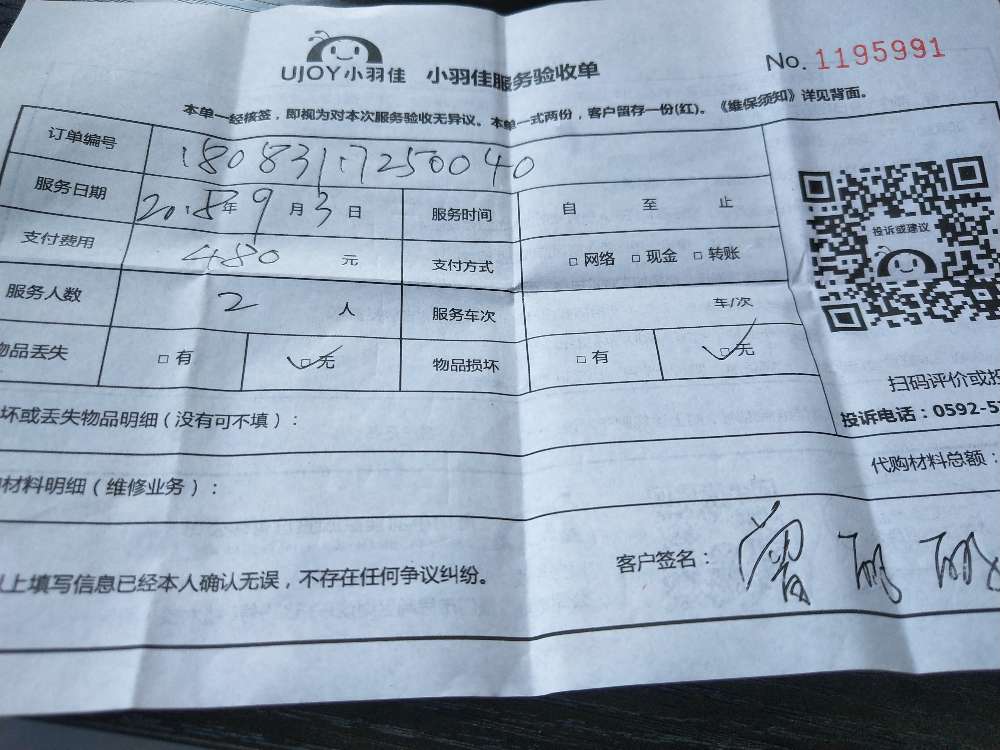 UJOY小羽佳 小羽佳服务验收单 No. 1195991
本单一经核签，即视为对本次服务验收无异议。本单一式两份，客户留存一份(红)。《维保须知》详见背面。
订单编号 18083117250040
服务日期 2018年9月3日 服务时间 自 至 止
投诉或建议
支付费用 480 元 支付方式 □ 网络 □ 现金 □ 转账
服务人数 2 人 服务车次 车/次
物品丢失 □ 有 □ 无 物品损坏 □ 有 □ 无
扫码评价或投
坏或丢失物品明细（没有可不填）： 投诉电话：0592-5
材料明细（维修业务）： 代购材料总额：
上填写信息已经本人确认无误，不存在任何争议纠纷。 客户签名：曾丽丽